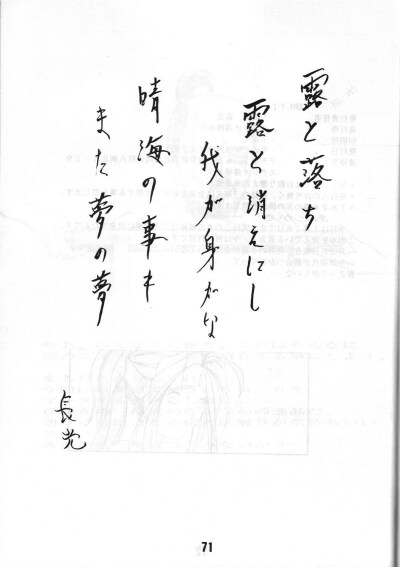 露と落ち
露と消えにし
我が身かな
晴海の事も
また夢の夢
長光
71